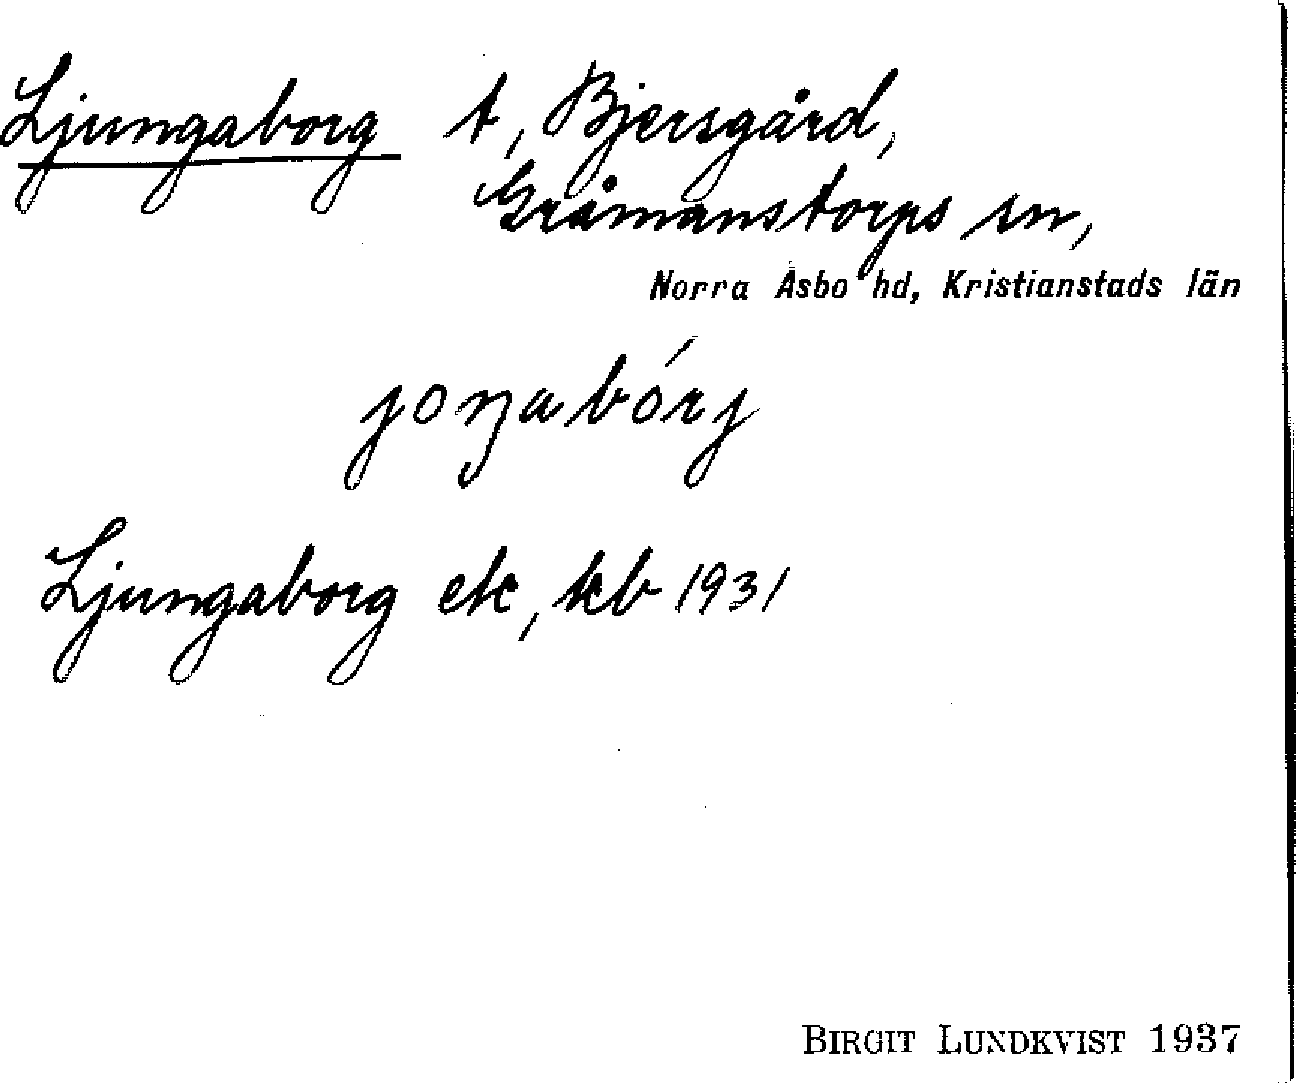 Ljungaborg t, Bjersgård,
Gråmanstorps sn,
Norra Åsbo hd, Kristianstads län
joŋabórj
Ljungaborg ek, kb 1931
BIRGIT LUNDKVIST 1937